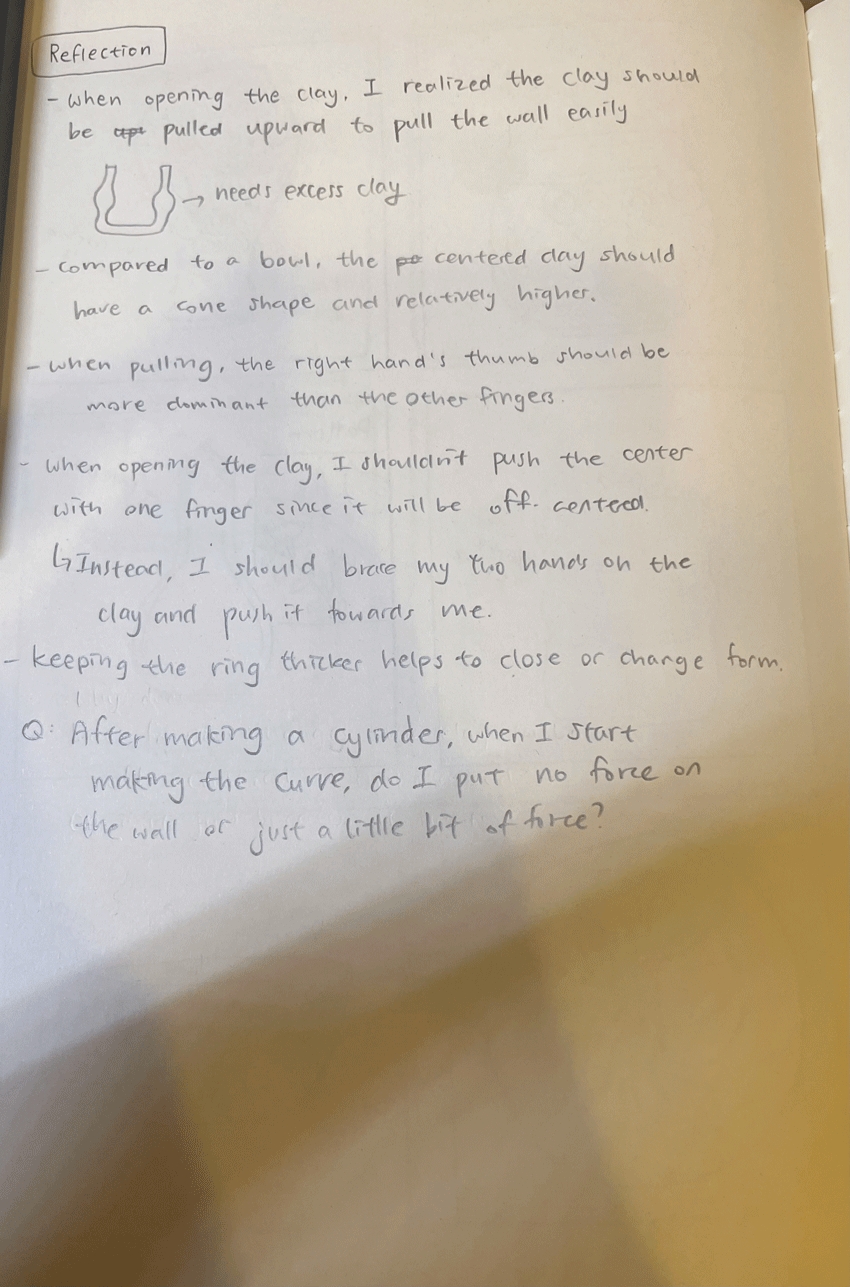 Reflection
- when opening the clay, I realized the clay should
be pulled upward to pull the wall easily
→ needs excess clay
- compared to a bowl, the centered clay should
have a cone shape and relatively higher.
- when pulling, the right hand's thumb should be
more dominant than the other fingers.
- when opening the clay, I shouldn't push the center
with one finger since it will be off-centered.
↳ Instead, I should brace my two hands on the
clay and push it towards me.
- keeping the ring thicker helps to close or change form.
Q: After making a cylinder, when I start
making the curve, do I put no force on
the wall or just a little bit of force?